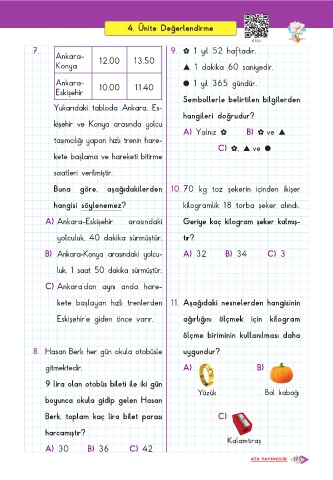 4. Ünite Değerlendirme
7.
Ankara-
Konya
12.00
13.50
Ankara-
Eskişehir
10.00
11.40
Yukarıdaki tabloda Ankara, Es-
kişehir ve Konya arasında yolcu
taşımacılığı yapan hızlı trenin hare-
kete başlama ve hareketi bitirme
saatleri verilmiştir.
Buna göre, aşağıdakilerden
hangisi söylenemez?
A) Ankara-Eskişehir arasındaki
yolculuk, 40 dakika sürmüştür.
B) Ankara-Konya arasındaki yolcu-
luk, 1 saat 50 dakika sürmüştür.
C) Ankara'dan aynı anda hare-
kete başlayan hızlı trenlerden
Eskişehir'e giden önce varır.
8. Hasan Berk her gün okula otobüsle
gitmektedir.
9 lira olan otobüs bileti ile iki gün
boyunca okula gidip gelen Hasan
Berk, toplam kaç lira bilet parası
harcamıştır?
A) 30 B) 36 C) 42
9. ✿ 1 yıl 52 haftadır.
▲ 1 dakika 60 saniyedir.
● 1 yıl 365 gündür.
Sembollerle belirtilen bilgilerden
hangileri doğrudur?
A) Yalnız ✿ B) ✿ ve ▲
C) ✿, ▲ ve ●
10. 70 kg toz şekerin içinden ikişer
kilogramlık 18 torba şeker alındı.
Geriye kaç kilogram şeker kalmış-
tır?
A) 32 B) 34 C) 3
11. Aşağıdaki nesnelerden hangisinin
ağırlığını ölçmek için kilogram
ölçme biriminin kullanılması daha
uygundur?
A) B)
Yüzük Bal kabağı
C)
Kalemtıraş
ATA YAYINCILIK 175